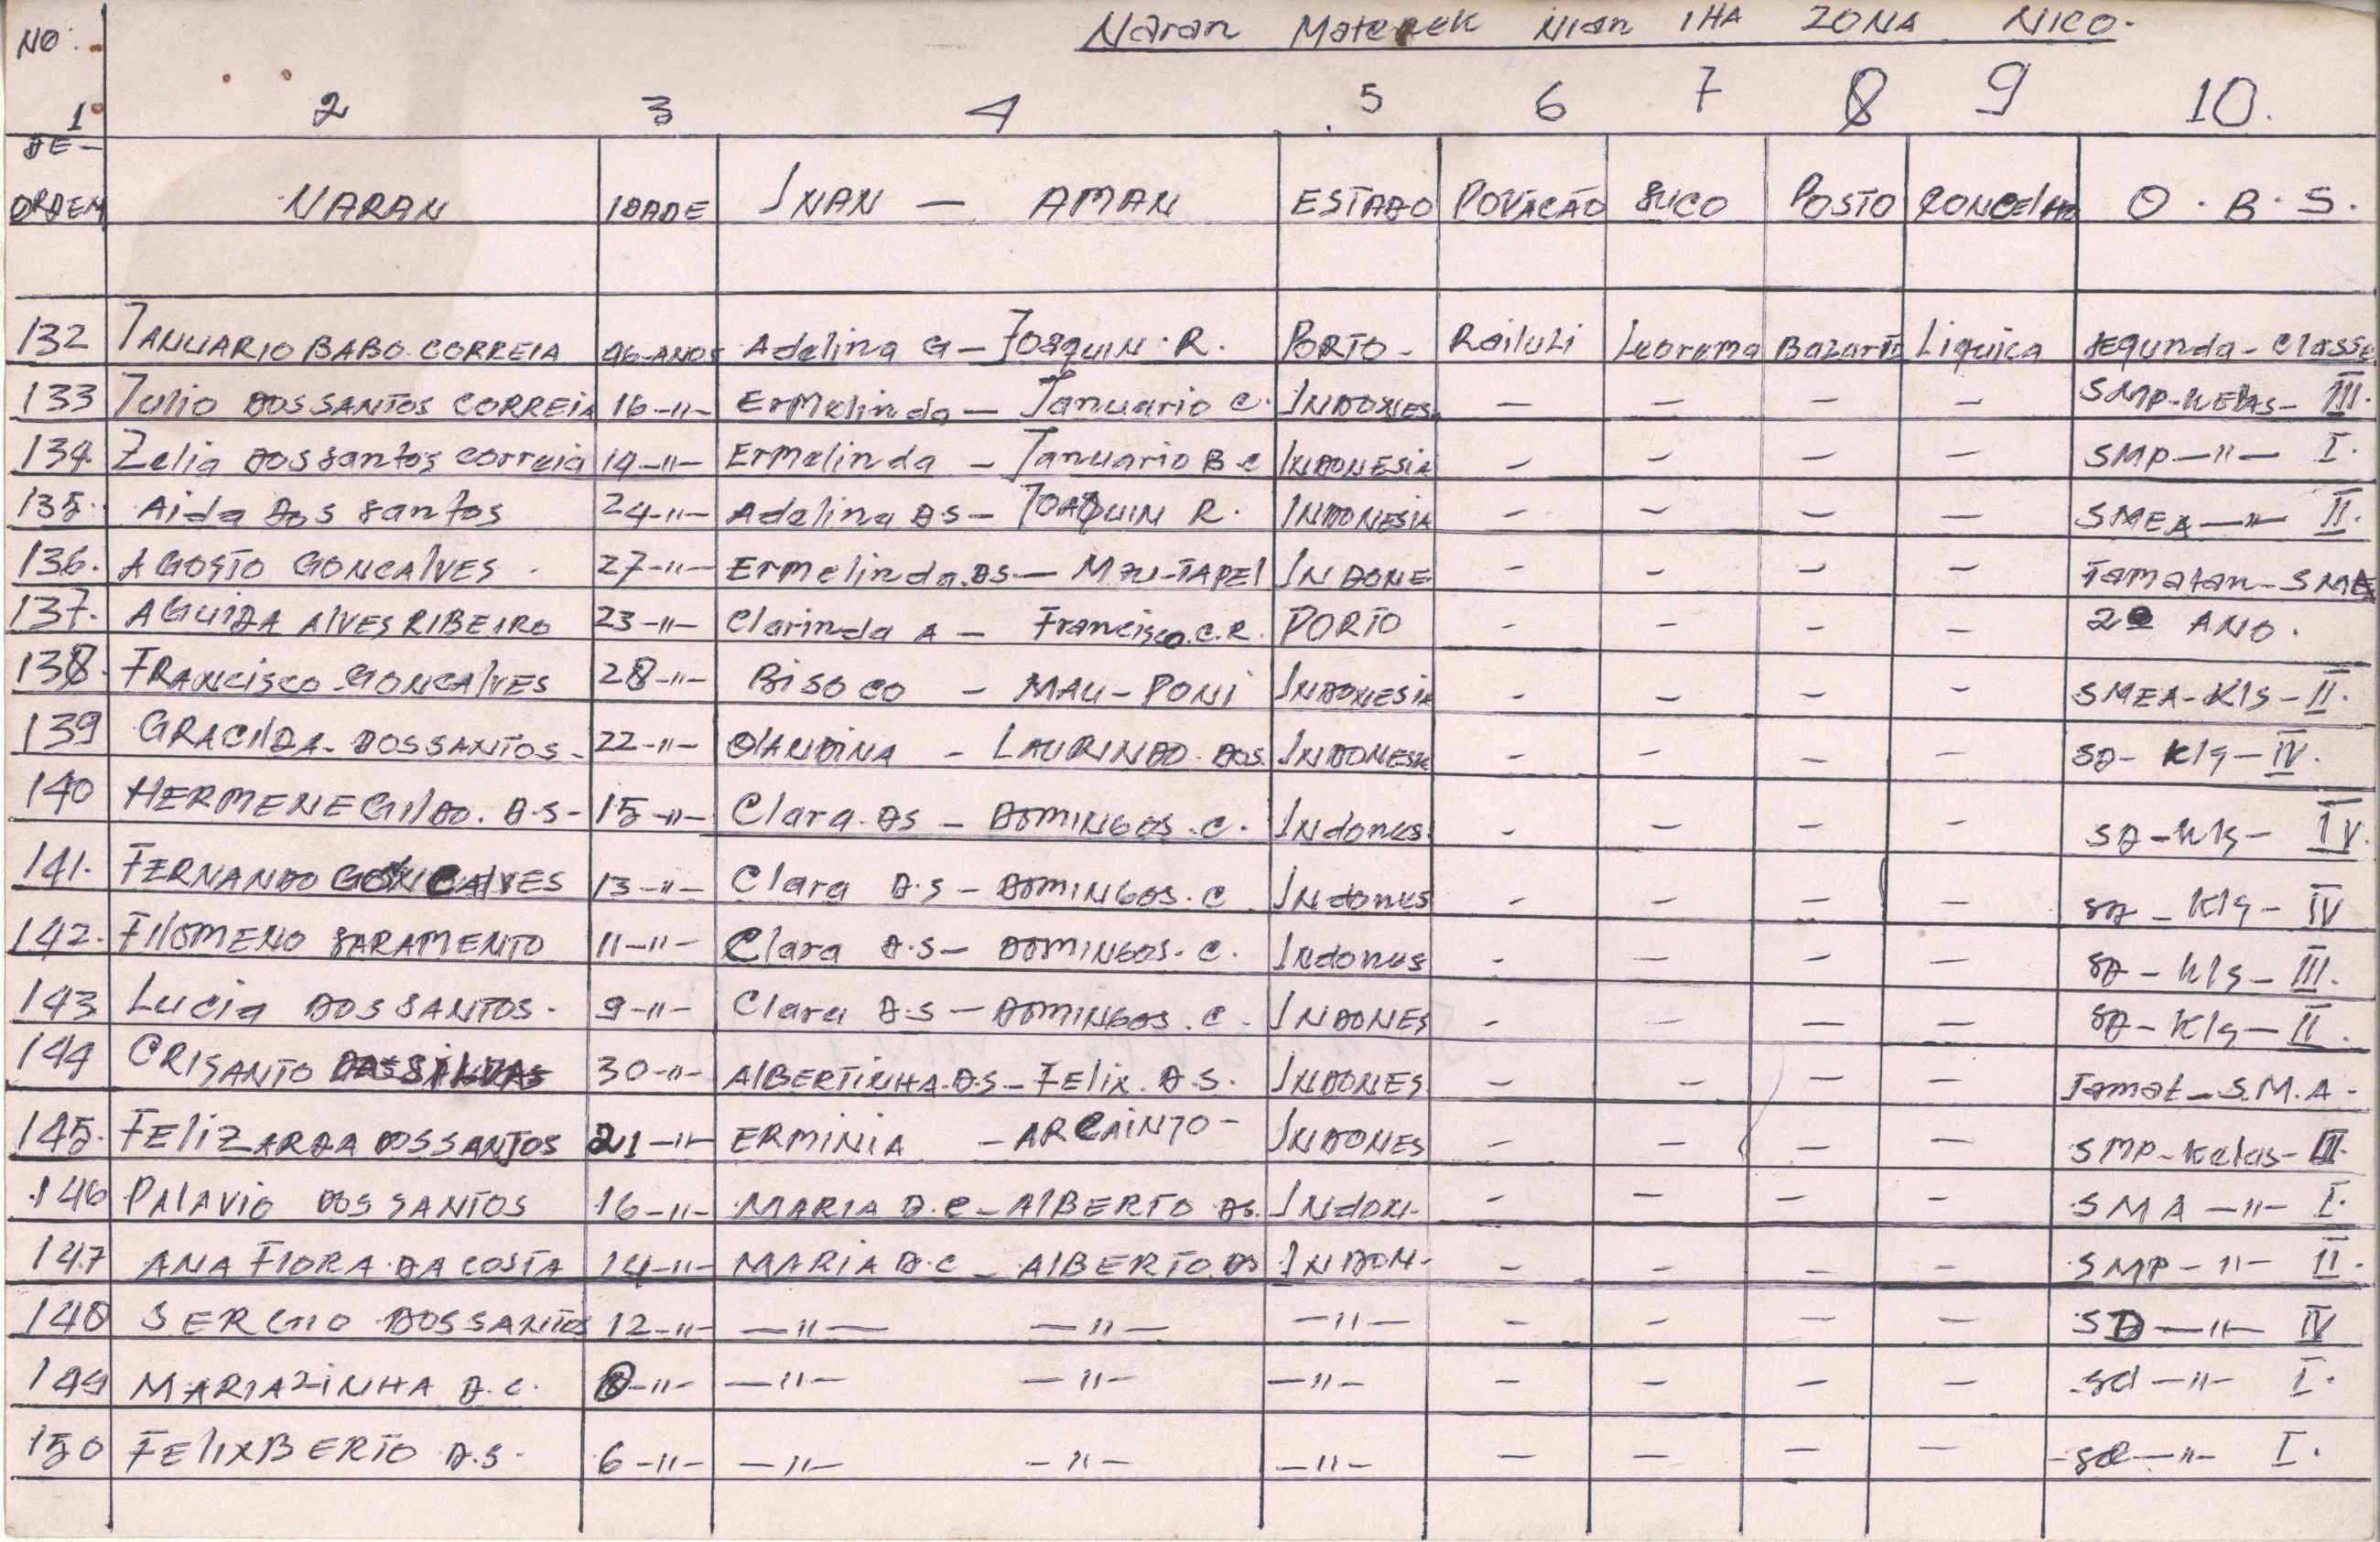 Naran Materek Nian IHA ZONA NICO.
NO:
1 2 3 4 5 6 7 8 9 10.
DE -
ORDEM NARAN IDADE INAN - AMAN ESTADO POVACÃO SUCO POSTO CONCELHO O.B.S.
132 JANUARIO BABO CORREIA 46-ANOS Adelina G - JOAQUIN.R. PORTO - Railuli Leorema Bazarte Liquica segunda - classe
133 Julio DOS SANTOS CORREIA 16-"- Ermelinda - Januario C. INDONES. - - - - SMP-KElas- III.
134. Zelia Dos santos correia 14-"- Ermelinda - Januario B.C INDONESIA - - - - SMP -"- I.
135. Aida Dos santos 24-"- Adelina DS - JOAQUIN R. INDONESIA - - - - SMEA -"- II.
136. AGOSTO GONCALVES. 27-"- Ermelinda.DS - MAU-TAPEL INDONE - - - - Tamatan - SMA
137. AGUIDA ALVES RIBEIRO 23-"- Clarinda A - Francisco.C.R. PORTO - - - - 2º ANO.
138. FRANCISCO GONCALVES 28-"- BISOCO - MAU-PONI INDONESIA - - - - SMEA-Kls-II.
139 GRACILDA-DOS SANTOS- 22-"- OLANDINA - LAURINDO DOS. INDONESIA - - - - SD- Kls-IV.
140 HERMENEGILDO. D.S- 15-"- Clara DS - DOMINGOS.C. Indones. - - - - SD-Kls- IV.
141. FERNANDO GONCALVES 13-"- Clara D.S - DOMINGOS.C Indones - - - - SD - Kls- IV
142. FILOMENO SARAMENTO 11-"- Clara D.S - DOMINGOS.C. Indones - - - - SD - Kls- III.
143 Lucia DOS SANTOS. 9-"- Clara D.S - DOMINGOS.C. INDONES - - - - SD-Kls-II.
144 CRISANTO 30-"- ALBERTINHA.D.S - FElix.D.S. INDONES - - - - Tamat - S.M.A.
145. FELIZARDA DOS SANTOS 21-"- ERMINIA - ARCAINJO- INDONES - - - - SMP-Kelas-
146 PALAVIO DOS SANTOS 16-"- MARIA D.C - ALBERTO DS. INdoni. - - - - SMA -"- I.
147 ANA FLORA DA COSTA 14-"- MARIA D.C - ALBERTO.DS INDON. - - - - SMP -"- II.
148 SERGIO DOS SANTOS 12-"- -"- -"- -"- - - - - SD -"- IV
149 MARIAZINHA D.C. 8-"- -"- -"- -"- - - - - sd -"- I.
150 FELIXBERTO D.S. 6-"- -"- -"- -"- - - - - sd -"- I.